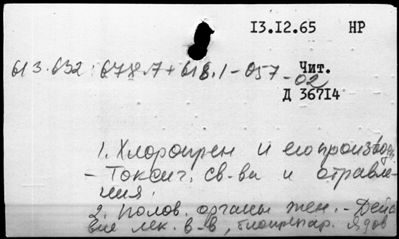 13.12.65 НР
613.632:678.7+618.1-057-02
Чит.
Д 36714
1. Хлоропрен и его производ.
- Токсич. св-ва и отравле-
ния.
2. Полов. органы жен. - Дейс
вие лек. в-в, биопрепар. ядов